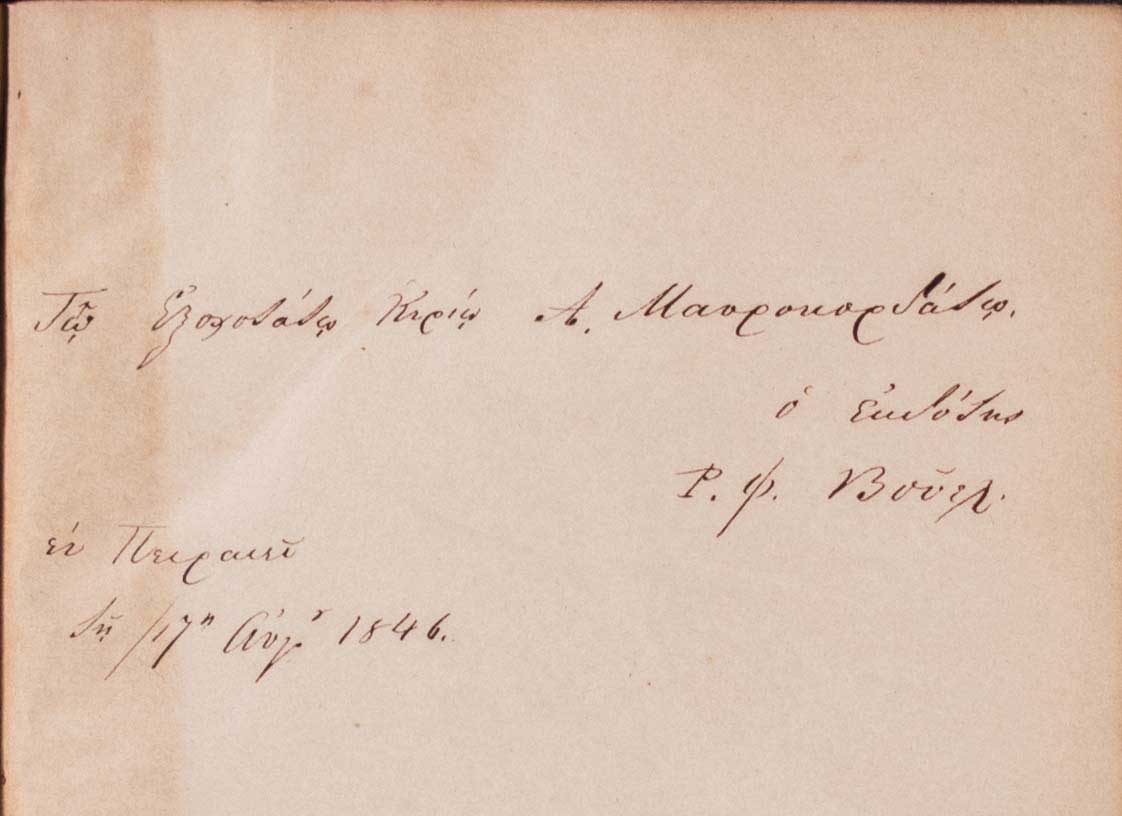 Τῷ Ἐξοχοτάτῳ Κυρίῳ Α. Μαυροκορδάτῳ.
ὁ ἐκδότης
Ρ. Φ. Βούελ.
ἐν Πειραιεῖ
τῇ 17ῃ Αὐγ. 1846.